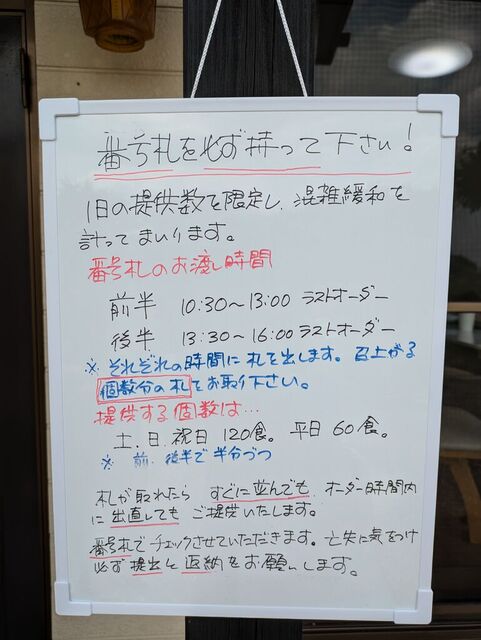 番号札を必ず持って下さい!
1日の提供数を限定し、混雑緩和を
計ってまいります。
番号札のお渡し時間
前半 10:30～13:00 ラストオーダー
後半 13:30～16:00 ラストオーダー
※ それぞれの時間に札を出します。召上がる
個数分の札をお取り下さい。
提供する個数は…
土.日.祝日 120食。平日 60食。
※ 前.後半で半分づつ
札が取れたら すぐに並んでも、オーダー時間内
に出直しても ご提供いたします。
番号札でチェックさせていただきます。亡失に気をつけ
必ず提出と返納をお願いします。